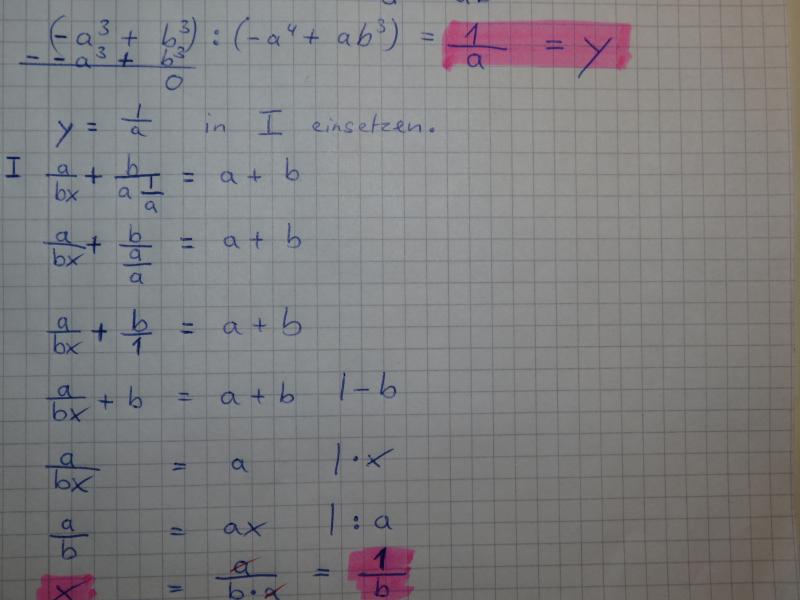 (-a³ + b³) : (-a⁴ + ab³) = 1/a = y
- -a³ + b³
0
y = 1/a in I einsetzen.
I a/bx + b/(a 1/a) = a + b
a/bx + b/(a/a) = a + b
a/bx + b/1 = a + b
a/bx + b = a + b |- b
a/bx = a |· x
a/b = ax |: a
x = a/(b·a) = 1/b